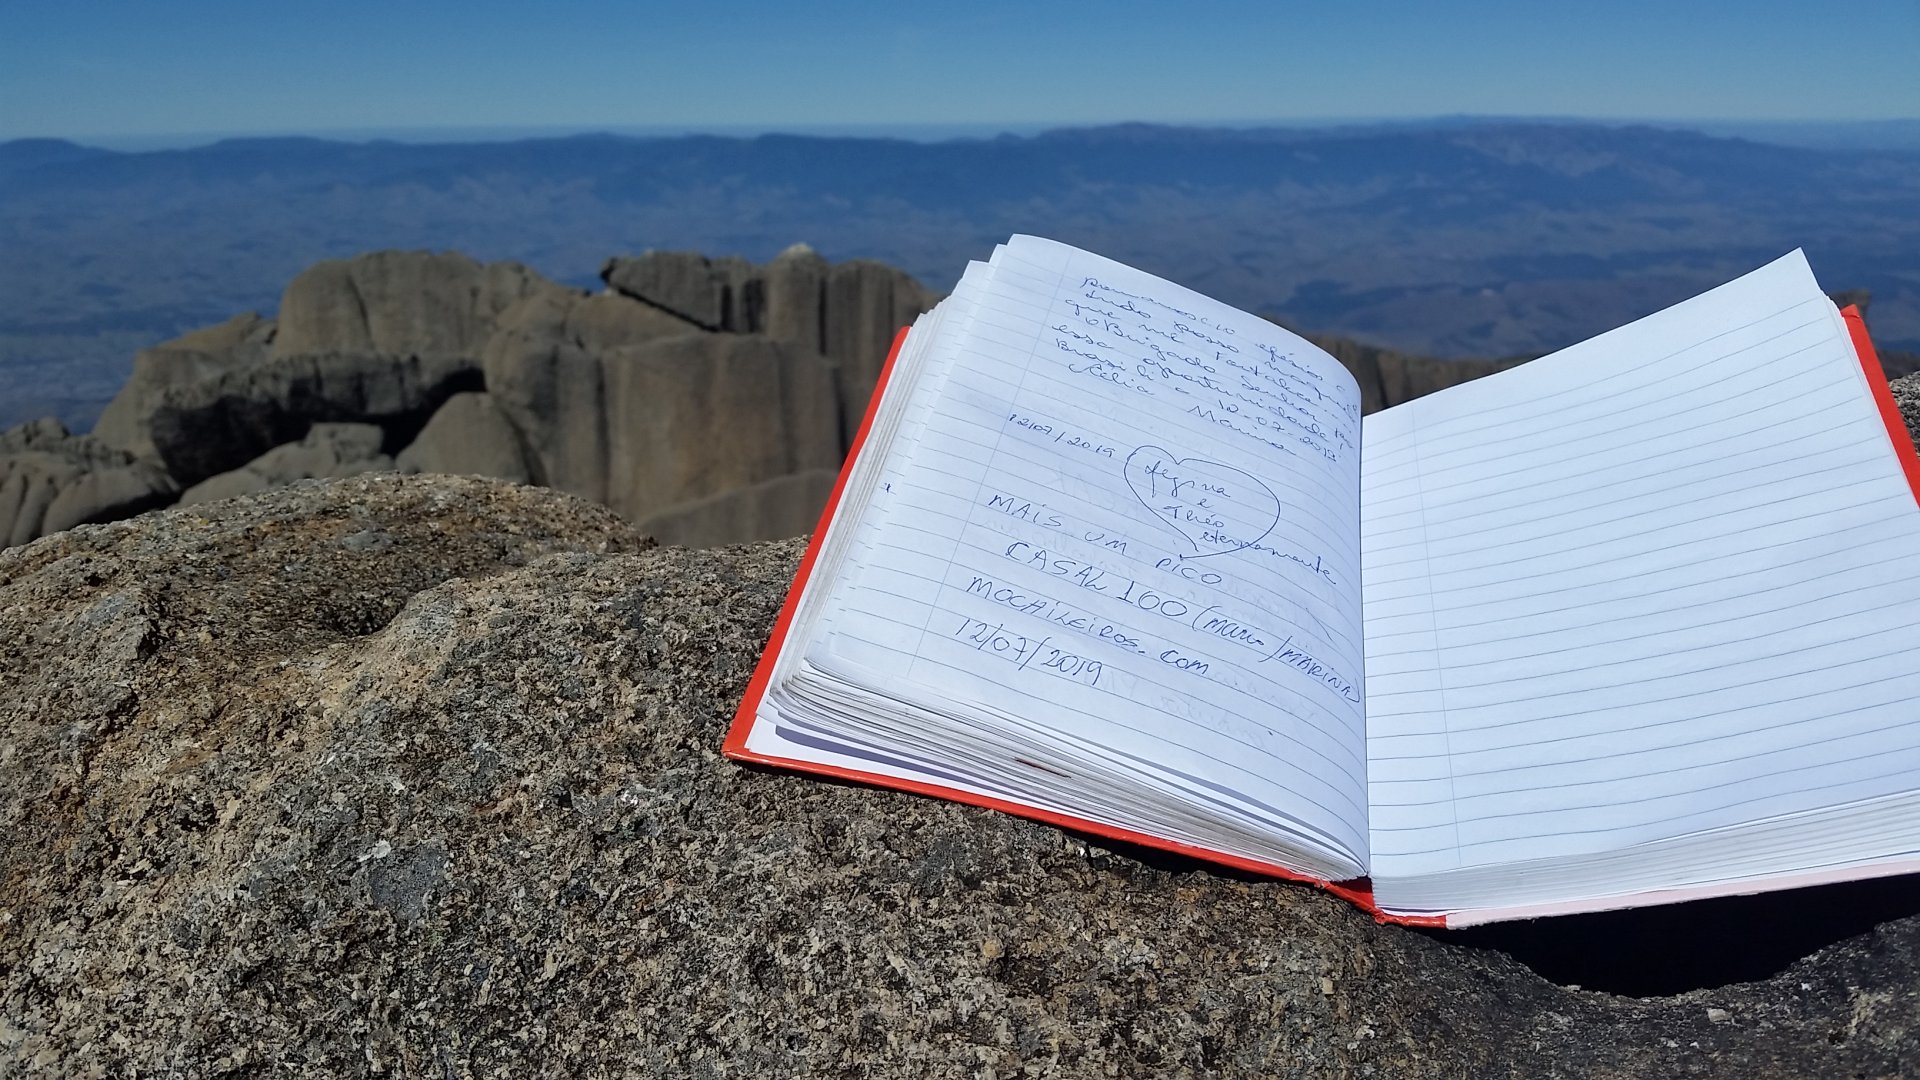 Tudo posso
que me fortalece
oBrigado Senhor
essa oportunidade
Brasilia 12-07-2019
Célia Marina
12/07/2019
Regina
e
Théo
eternamente
MAIS UM PICO
CASAL 100 (MARIO/MARINA)
MOCHILEIROS.COM
12/07/2019